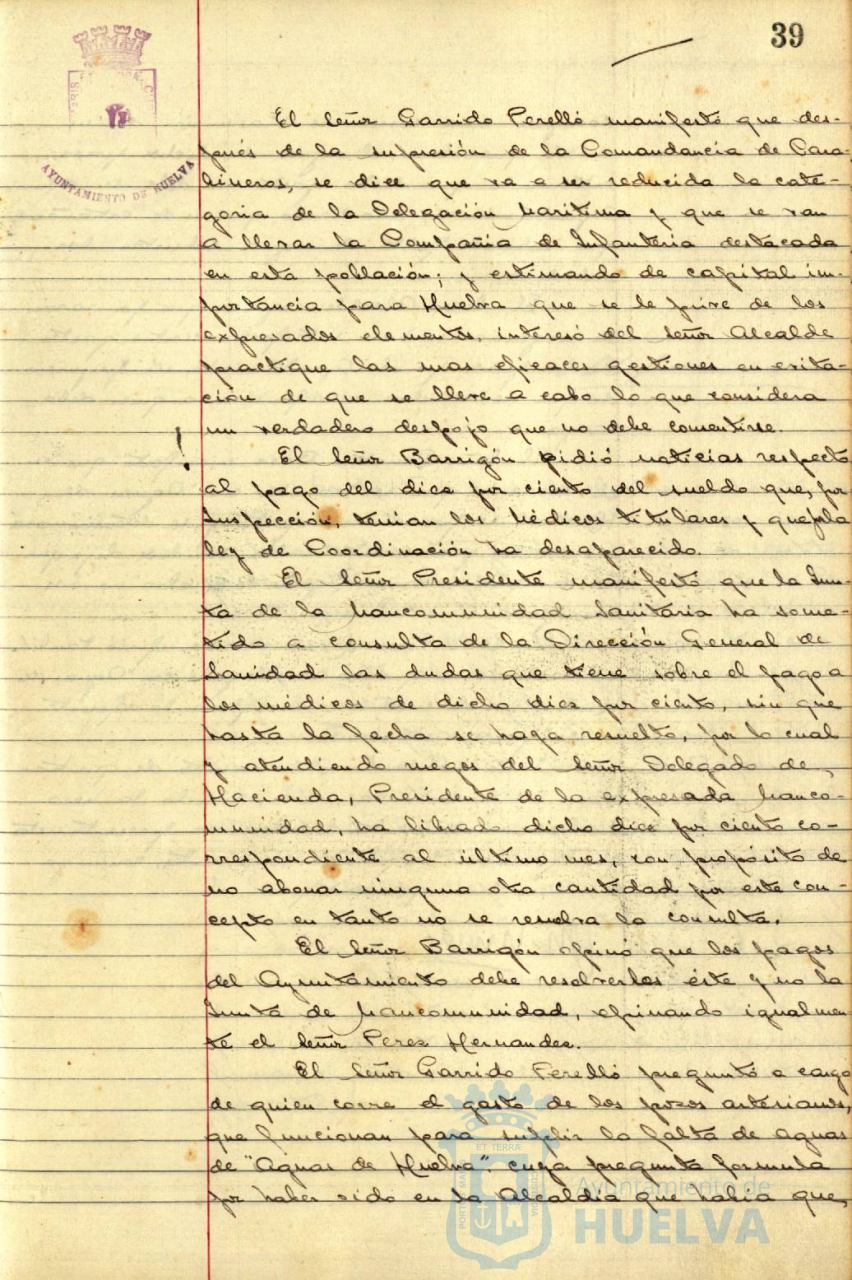 39
AYUNTAMIENTO DE HUELVA
El Señor Garrido Perelló manifestó que des-
pués de la supresión de la Comandancia de Cara-
bineros, se dice que va a ser reducida la cate-
goria de la Delegación Maritima y que se van
a llevar la Compañia de Infanteria destacada
en esta población; y estimando de capital im-
portancia para Huelva que se le prive de los
expresados elementos, interesó del Señor Alcalde
practique las mas eficaces gestiones en evita-
ción de que se lleve a cabo lo que considera
un verdadero despojo que no debe consentirse.
!
El Señor Barrigón pidió noticias respecto
al pago del diez por ciento del sueldo que, por
Inspección, tenian los Médicos titulares y que por la
ley de Coordinación ha desaparecido.
El Señor Presidente manifestó que la Jun-
ta de la Mancomunidad Sanitaria ha some-
tido a consulta de la Dirección General de
Sanidad las dudas que tiene sobre el pago a
los médicos de dicho diez por ciento, sin que
hasta la fecha se haya resuelto, por lo cual
y atendiendo ruegos del Señor Delegado de
Hacienda, Presidente de la expresada Manco-
munidad, ha librado dicho diez por ciento co-
rrespondiente al último mes, con propósito de
no abonar ninguna otra cantidad por este con-
cepto en tanto no se resuelva la consulta.
El Señor Barrigón opinó que los pagos
del Ayuntamiento debe resolverlos éste y no la
Junta de Mancomunidad, opinando igualmen
te el Señor Perez Hernandez.
El Señor Garrido Perelló preguntó a cargo
de quien corre el gasto de los pozos artesianos,
que funcionan para suplir la falta de aguas
de "Aguas de Huelva" cuya pregunta formula
por haber oido en la Alcaldía que habia que,
Ayuntamiento de
HUELVA